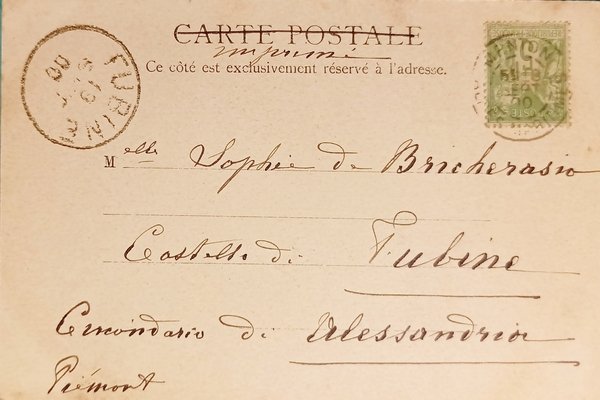 CARTE POSTALE
imprimé
Ce côté est exclusivement réservé à l'adresse.
FUBINE
00
Melle Sophie de Bricherasio
Castello di Fubine
Circondario di Alessandria
Piémont